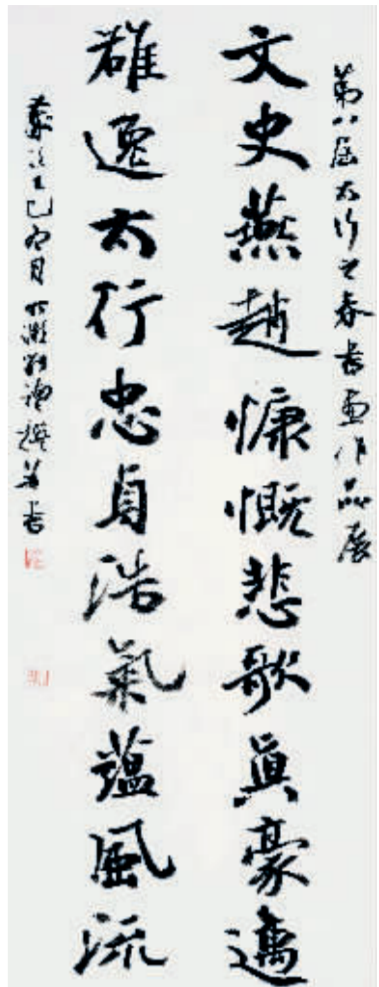 第八届太行之春书画作品展
文史燕趙慷慨悲歌真豪邁
雄逸太行忠貞浩氣蕴風流
巳 月 撰并书